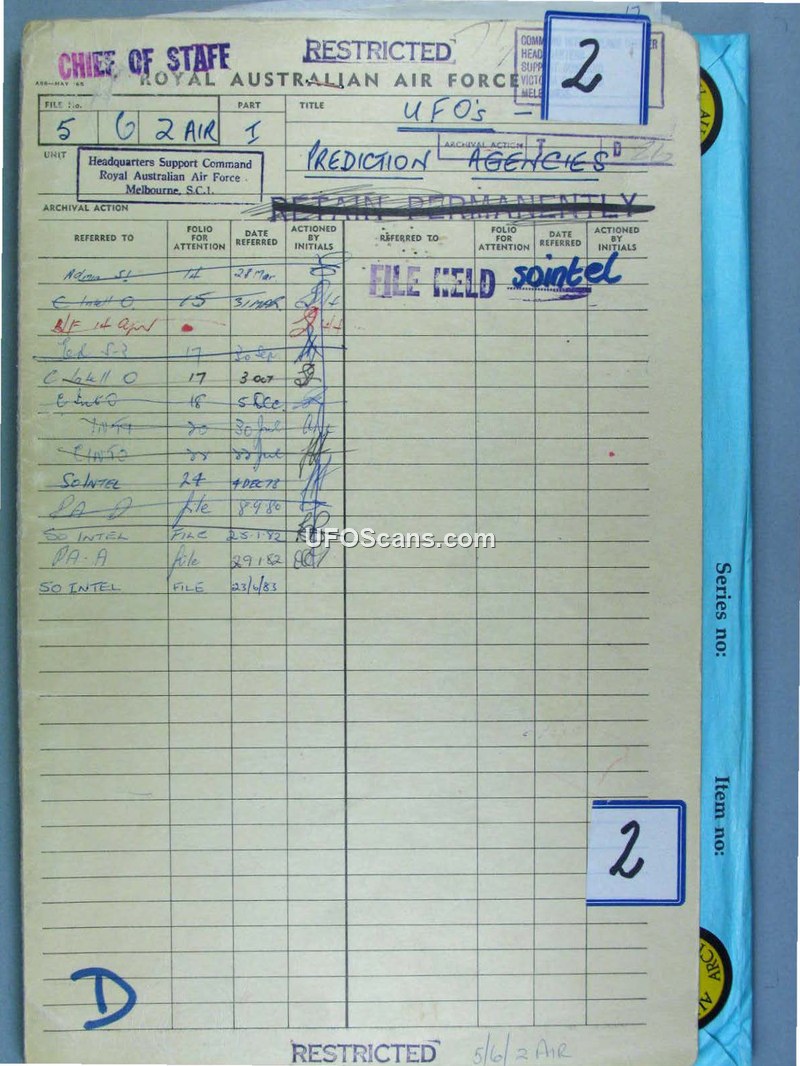 CHIEF OF STAFF
RESTRICTED
ROYAL AUSTRALIAN AIR FORCE
2
FILE No.
PART
TITLE
UFO's -
5 6 2 AIR I
PREDICTION AGENCIES
ARCHIVAL ACTION
D
UNIT
Headquarters Support Command
Royal Australian Air Force
Melbourne, S.C.1.
ARCHIVAL ACTION
RETAIN PERMANENTLY
REFERRED TO
FOLIO FOR ATTENTION
DATE REFERRED
ACTIONED BY INITIALS
REFERRED TO
FOLIO FOR ATTENTION
DATE REFERRED
ACTIONED BY INITIALS
FILE HELD sointel
14 28 Mar
15 31 MAR
B/F 14 Apr
17
17 3 OCT
18 5 DEC
20 30 Jul
22 Jul
SO INTEL 24 4 DEC 78
file 8.9.80
SO INTEL FILE 25.1.82
PA-A file 29.1.82
SO INTEL FILE 23/6/83
UFOScans.com
Series no:
Item no:
2
D
RESTRICTED
5/6/2 AIR